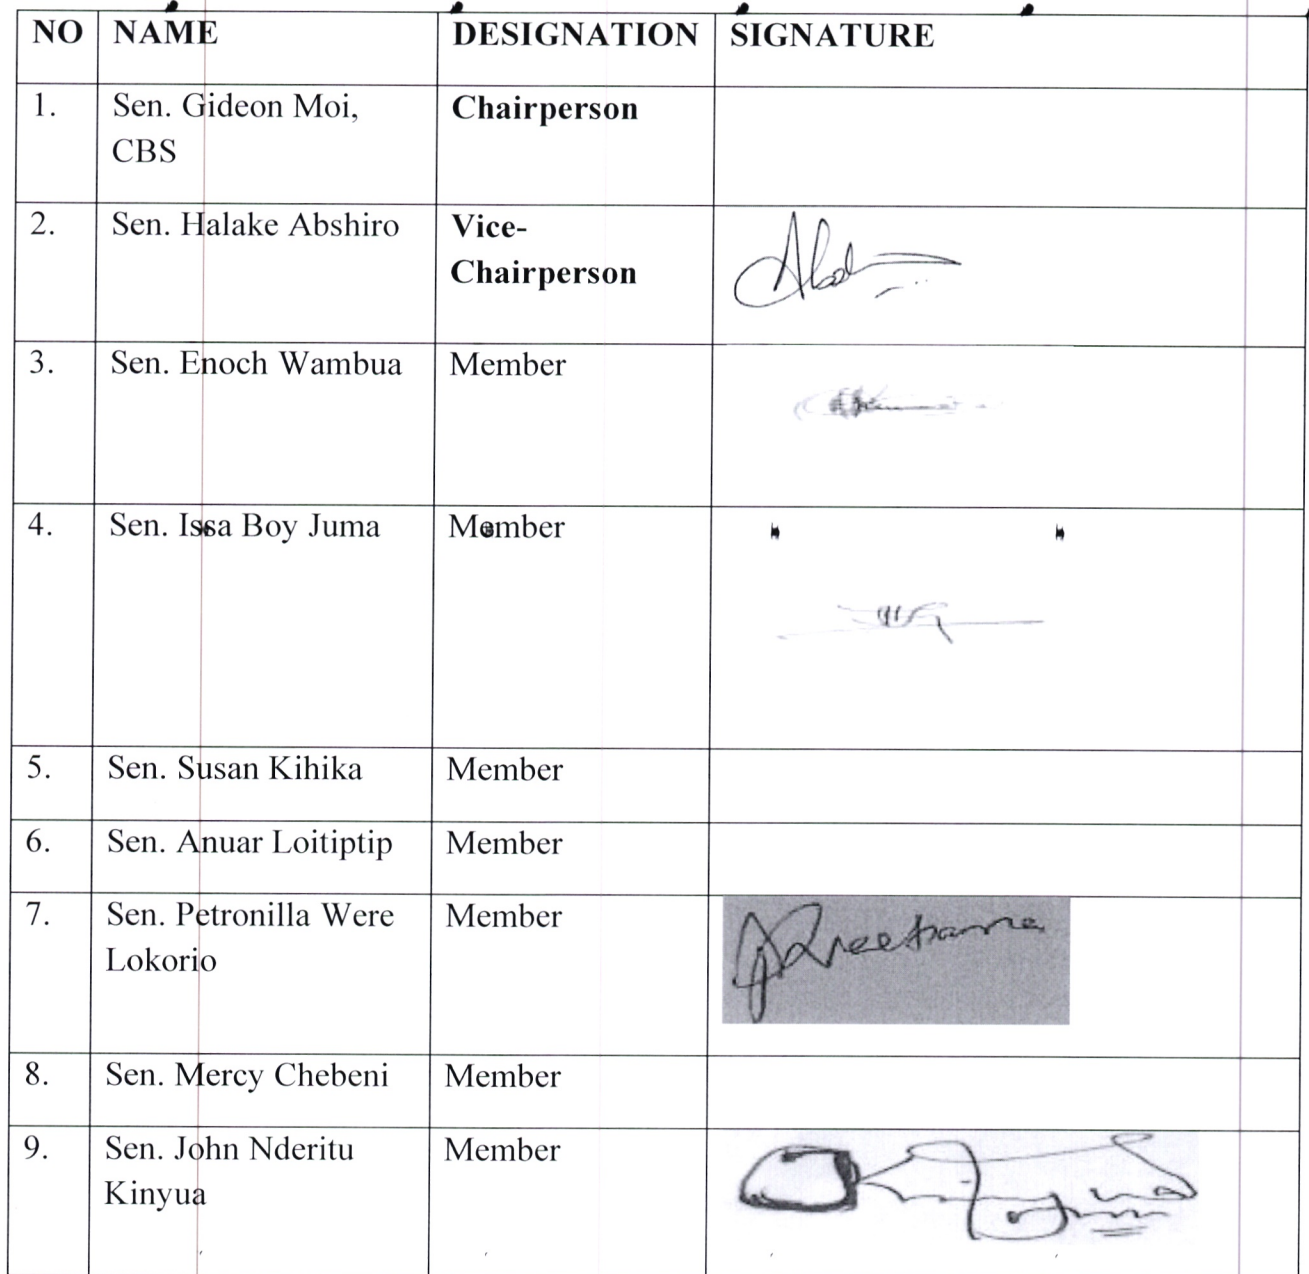 NO NAME DESIGNATION SIGNATURE
1. Sen. Gideon Moi, Chairperson
CBS
2. Sen. Halake Abshiro Vice-
Chairperson
3. Sen. Enoch Wambua Member
4. Sen. Issa Boy Juma Member
5. Sen. Susan Kihika Member
6. Sen. Anuar Loitiptip Member
7. Sen. Petronilla Were Member
Lokorio
8. Sen. Mercy Chebeni Member
9. Sen. John Nderitu Member
Kinyua